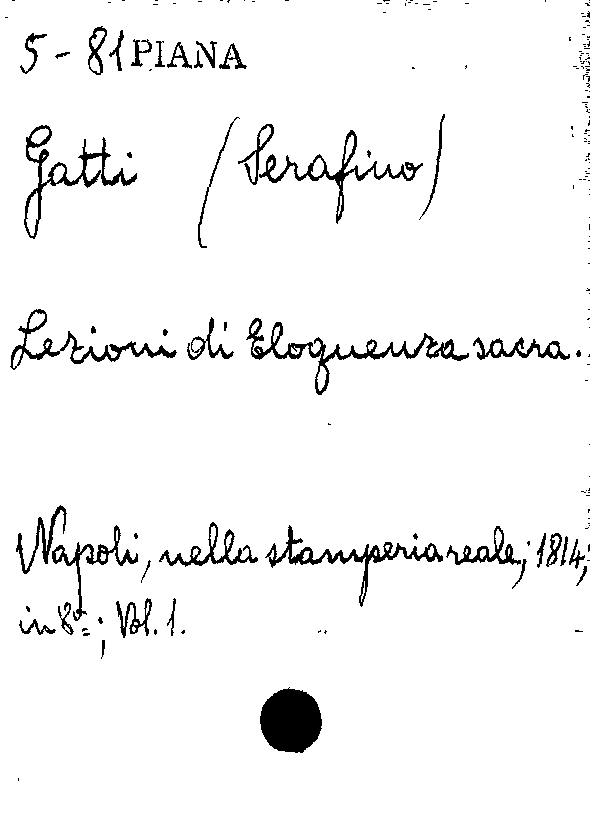 5 - 81 PIANA
Gatti (Serafino)
Lezioni di Eloquenza sacra.
Napoli, nella stamperia reale; 1814;
in 8º; Vol. 1.